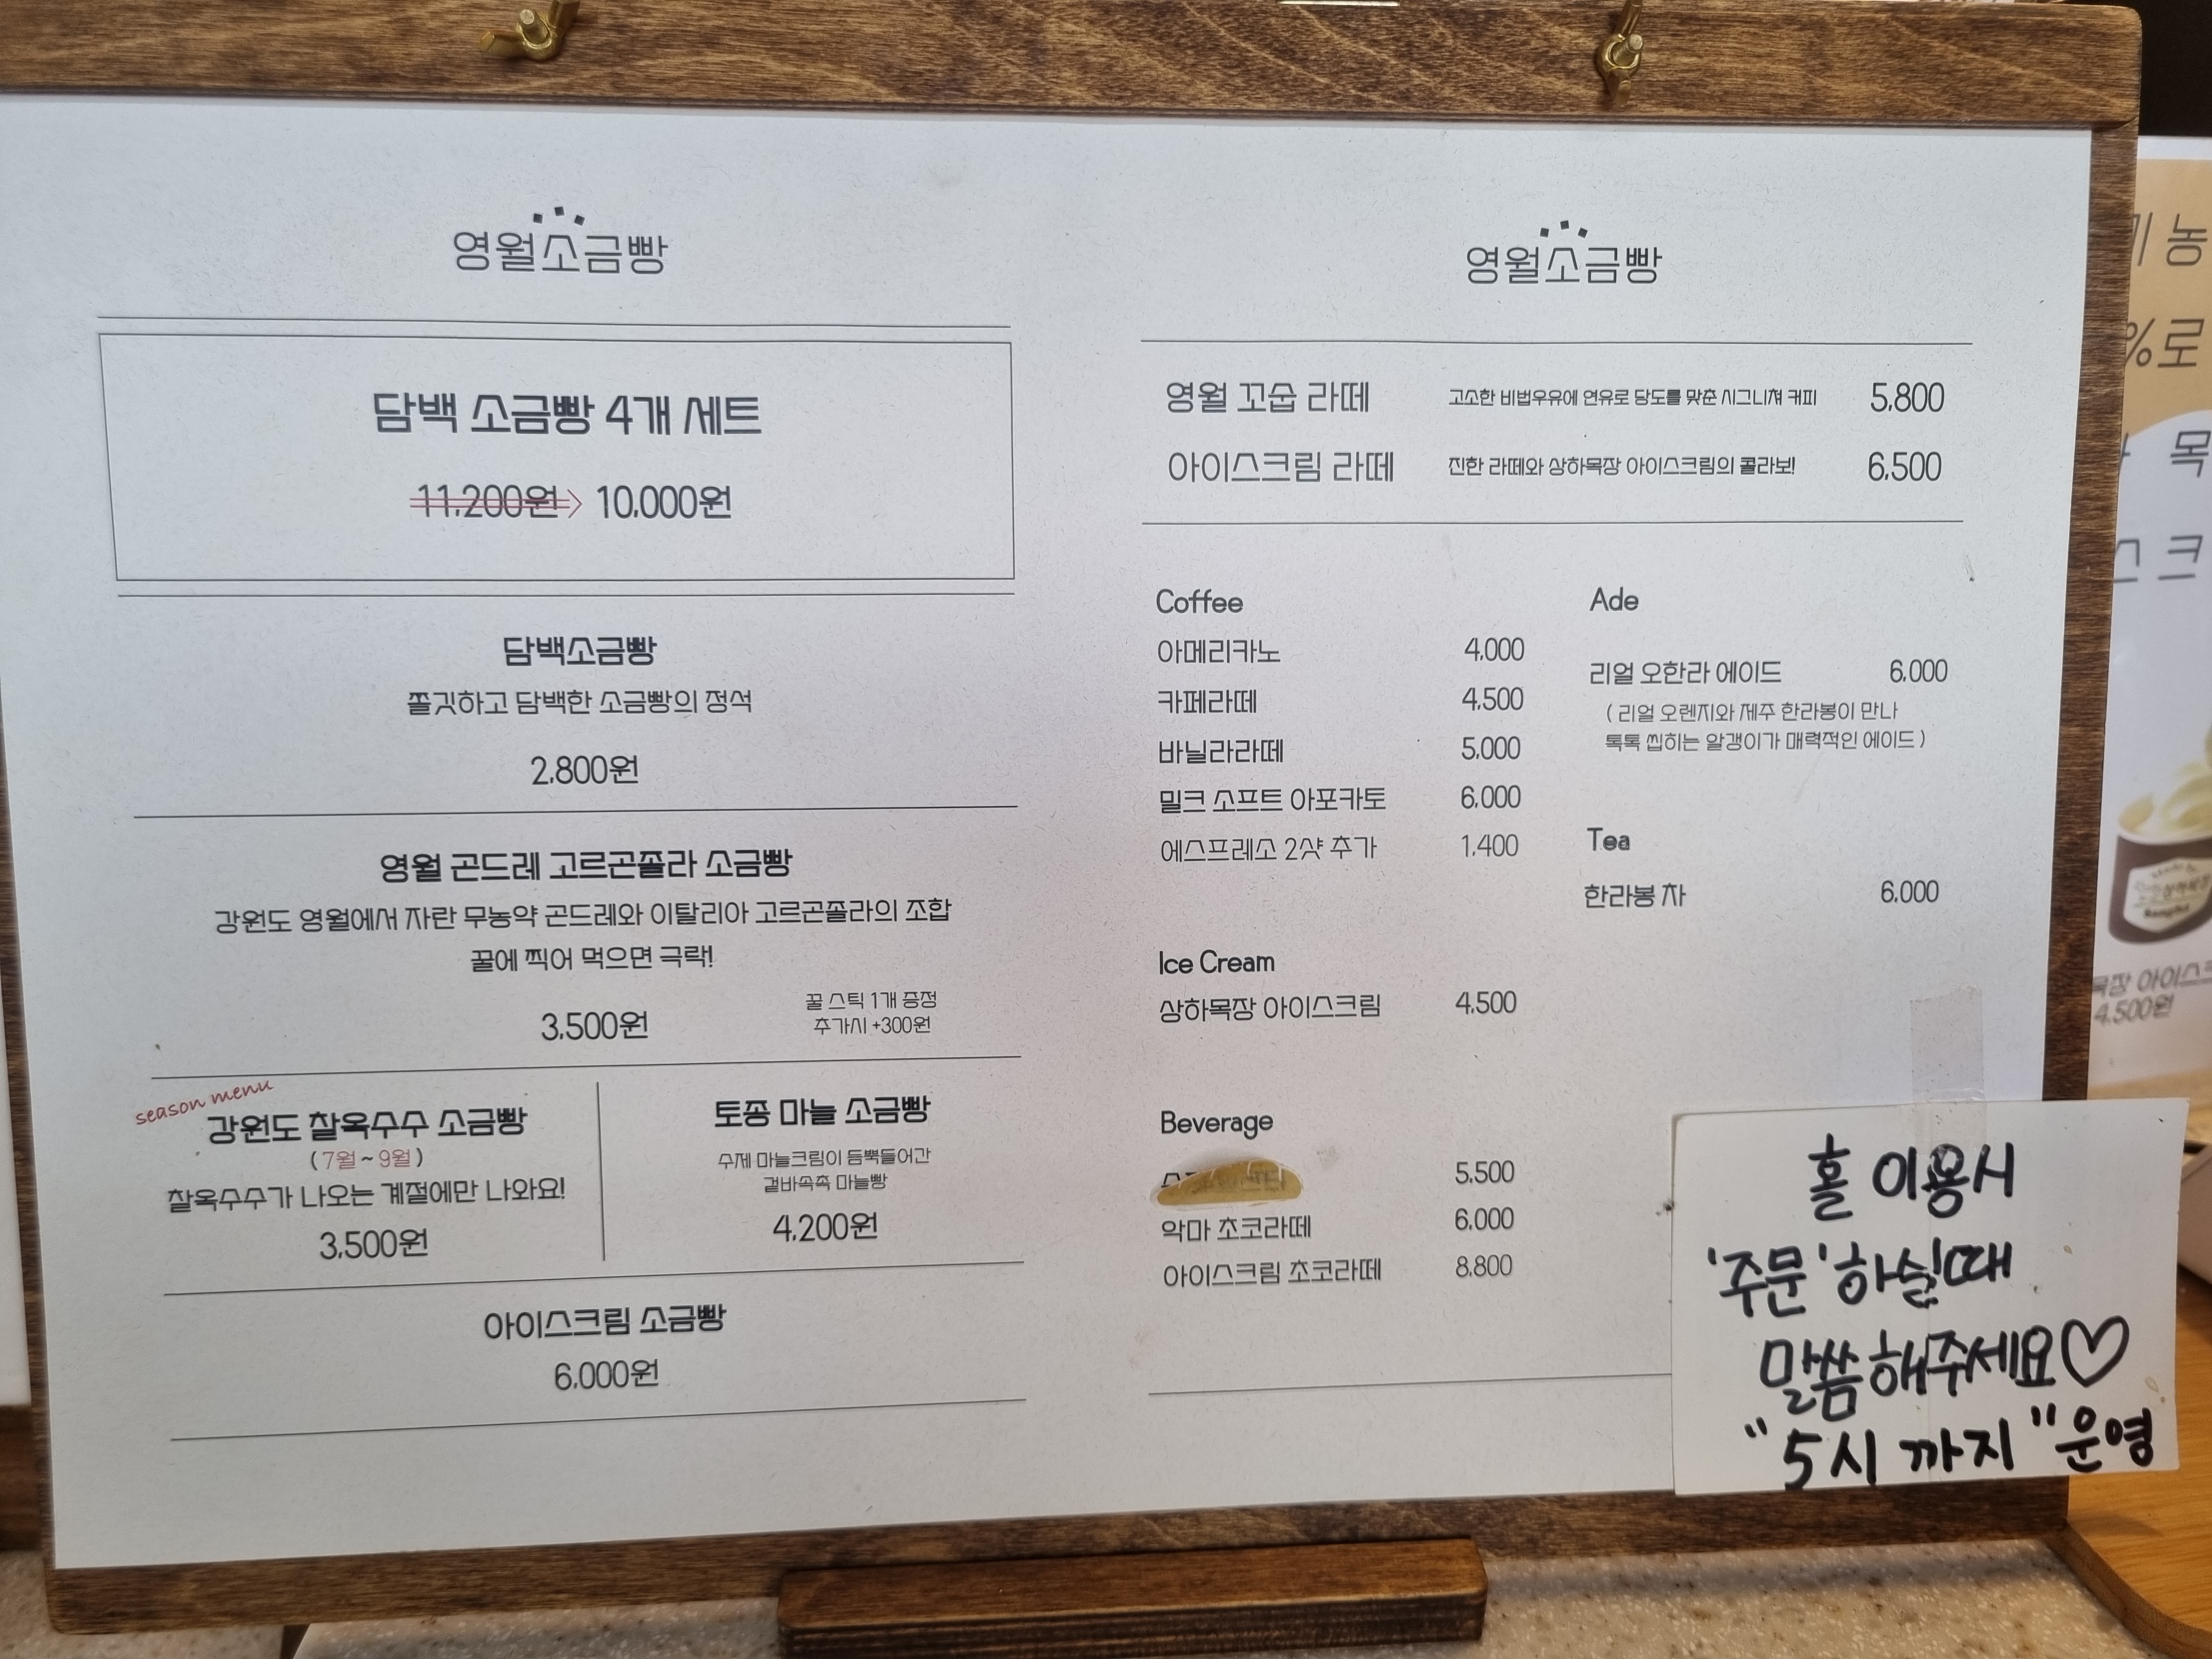 영월소금빵
담백 소금빵 4개 세트
11,200원 > 10,000원
담백소금빵
쫄깃하고 담백한 소금빵의 정석
2,800원
영월 곤드레 고르곤졸라 소금빵
강원도 영월에서 자란 무농약 곤드레와 이탈리아 고르곤졸라의 조합
꿀에 찍어 먹으면 극락!
3,500원
꿀 스틱 1개 증정
추가시 +300원
season menu
강원도 찰옥수수 소금빵
( 7월 ~ 9월 )
찰옥수수가 나오는 계절에만 나와요!
3,500원
토종 마늘 소금빵
수제 마늘크림이 듬뿍들어간
겉바속촉 마늘빵
4,200원
아이스크림 소금빵
6,000원
영월소금빵
영월 꼬숩 라떼 고소한 비법우유에 연유로 당도를 맞춘 시그니쳐 커피 5,800
아이스크림 라떼 진한 라떼와 상하목장 아이스크림의 콜라보! 6,500
Coffee
아메리카노 4,000
카페라떼 4,500
바닐라라떼 5,000
밀크 소프트 아포카토 6,000
에스프레소 2샷 추가 1,400
Ice Cream
상하목장 아이스크림 4,500
Beverage
5,500
악마 초코라떼 6,000
아이스크림 초코라떼 8,800
Ade
리얼 오한라 에이드 6,000
( 리얼 오렌지와 제주 한라봉이 만나
톡톡 씹히는 알갱이가 매력적인 에이드 )
Tea
한라봉 차 6,000
홀 이용시
'주문'하실때
말씀해주세요♡
"5시 까지" 운영
농
%로
목
스크
목장 아이스크
4,500원